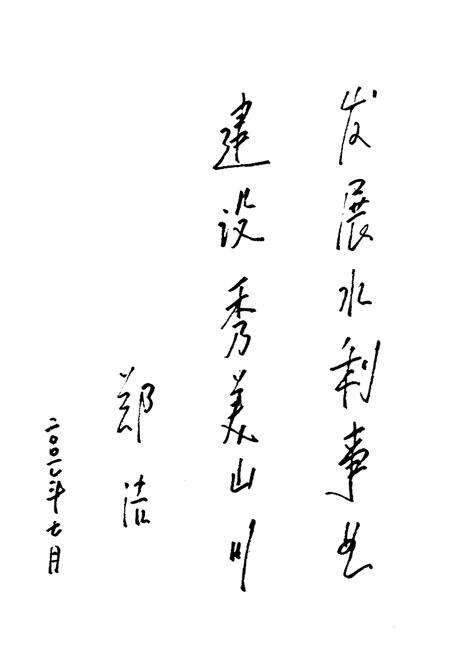 发展水利事业
建设秀美山川
郑洁
二〇〇年七月